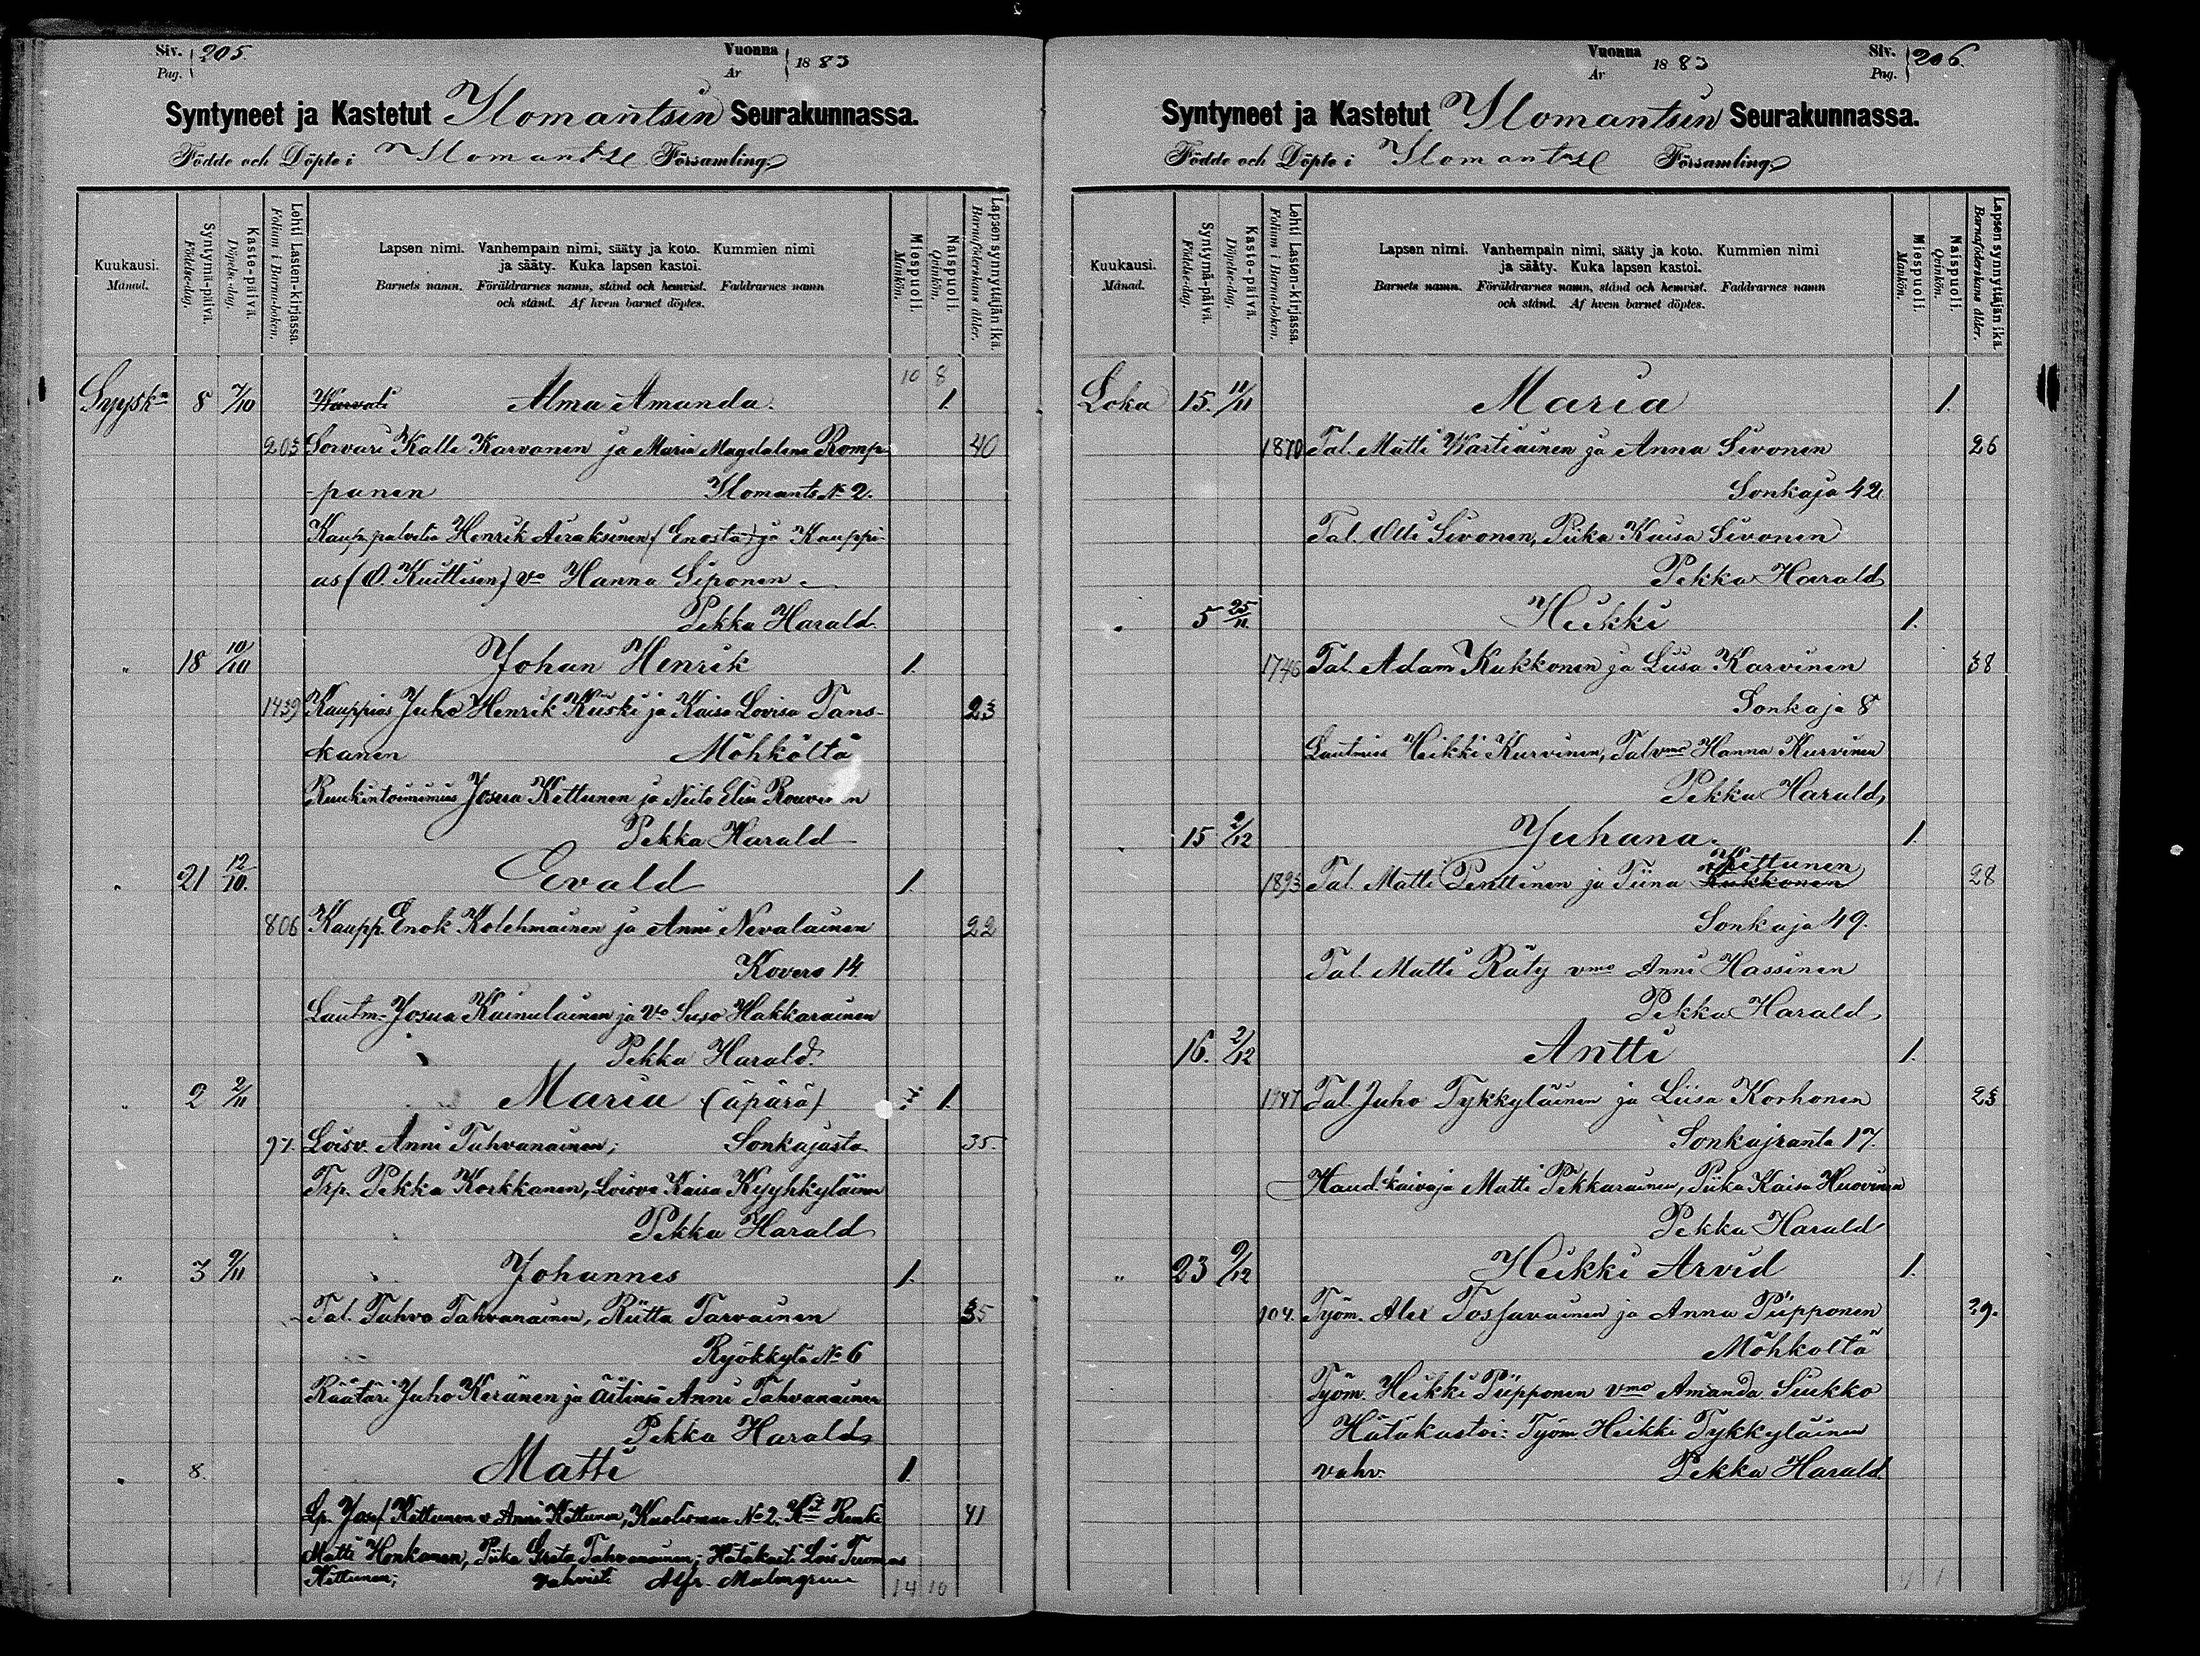 Siv. Pag. 205. Vuonna År 1883
Syntyneet ja Kastetut Ilomantsin Seurakunnassa.
Födde och Döpte i Ilomantsi Församling.
Kuukausi. Månad.
Syntymä-päivä. Födelse-dag.
Kaste-päivä. Döpelse-dag.
Lehti Lasten-kirjassa. Folium i Barna-boken.
Lapsen nimi. Vanhempain nimi, sääty ja koto. Kummien nimi
ja sääty. Kuka lapsen kastoi.
Barnets namn. Föräldrarnes namn, stånd och hemvist. Faddrarnes namn
och stånd. Af hvem barnet döptes.
Miespuoli. Mankön.
Naispuoli. Qvinkön.
Lapsen synnyttäjän ikä. Barnaföderskans ålder.
10 8
Syysk. 8 7/10 Alma Amanda. 1.
203 Sorvari Kalle Karvonen ja Maria Magdalena Romp- 40
-panen Ilomants No 2.
Kaup. palvelia Henrik Airaksinen (Enosta) ja Kauppi-
as (O. Kuittisen) vo Hanna Siponen.
Pekka Harald.
" 18 10/10 Johan Henrik 1.
1439 Kauppias Juho Henrik Kuski ja Kaisa Lovisa Tans- 23
kanen Möhköltä
Ruukintoimimies Josua Kettunen ja Neito Elin
Pekka Harald
" 21 12/10. Evald 1.
806 Kaupp. Enok Kolehmainen ja Anni Nevalainen 22
Kovero 14.
Lautm. Josua Kainulainen ja Vo Suso Hakkarainen
Pekka Harald.
" 2 2/11 Maria (äpärä) 1.
97. Loisv. Anni Tahvanainen; Sonkajasta 35.
Tsp. Pekka Korkkanen, Loisvo Kaisa Kyyhkyläinen
Pekka Harald
" 3 9/11 Johannes 1.
Tal. Tahvo Tahvanainen, Riitta Tarvainen 35
Ryökkylä No 6
Räätäri Juho Keränen ja äitinsä Anni Tahvanainen
Pekka Harald
" 8. Matti 1
Lp. Josef Kettunen v. Anni Kettunen, Kuolismaa No 2. Renki 41
Matti Honkanen, Piika Greta Tahvanainen; Hätäkasti Lois Tuomas
Kettunen; vahvisti Alfr. Malmgren 14 10
Vuonna År 1883 Siv. Pag. 206.
Syntyneet ja Kastetut Ilomantsin Seurakunnassa.
Födde och Döpte i Ilomantsi Församling.
Kuukausi. Månad.
Syntymä-päivä. Födelse-dag.
Kaste-päivä. Döpelse-dag.
Lehti Lasten-kirjassa. Folium i Barna-boken.
Lapsen nimi. Vanhempain nimi, sääty ja koto. Kummien nimi
ja sääty. Kuka lapsen kastoi.
Barnets namn. Föräldrarnes namn, stånd och hemvist. Faddrarnes namn
och stånd. Af hvem barnet döptes.
Miespuoli. Mankön.
Naispuoli. Qvinkön.
Lapsen synnyttäjän ikä. Barnaföderskans ålder.
Loka 15. 11/11 Maria 1.
1870 Tal. Matti Wartiainen ja Anna Sivonen 26
Sonkaja 42
Tal. Olli Sivonen, Piika Kaisa Sivonen
Pekka Harald
" 5 25/11. Heikki 1.
1746 Tal. Adam Kukkonen ja Liisa Karvinen 38
Sonkaja 8
Lautmies Heikki Kurvinen, Tal vmo Hanna Kurvinen
Pekka Harald,
" 15 2/12 Juhana. 1.
Kettunen
1893 Tal. Matti Penttinen ja Tiina Kukkonen 28
Sonkaja 49.
Tal. Matti Räty vmo Anni Hassinen
Pekka Harald
16. 2/12 Antti 1.
1747 Tal. Juho Tykkyläinen ja Liisa Korhonen 23
Sonkajranta 17.
Haud. kaivaja Matti Pekkarainen, Piika Kaisa Huovinen
Pekka Harald
" 23 9/12 Heikki Arvid 1.
104. Työm. Alex Tossavainen ja Anna Piipponen 29.
Möhköltä
Työm. Heikki Piipponen vmo Amanda Siukko
Hätäkastoi: Työm Heikki Tykkyläinen
vahv. Pekka Harald